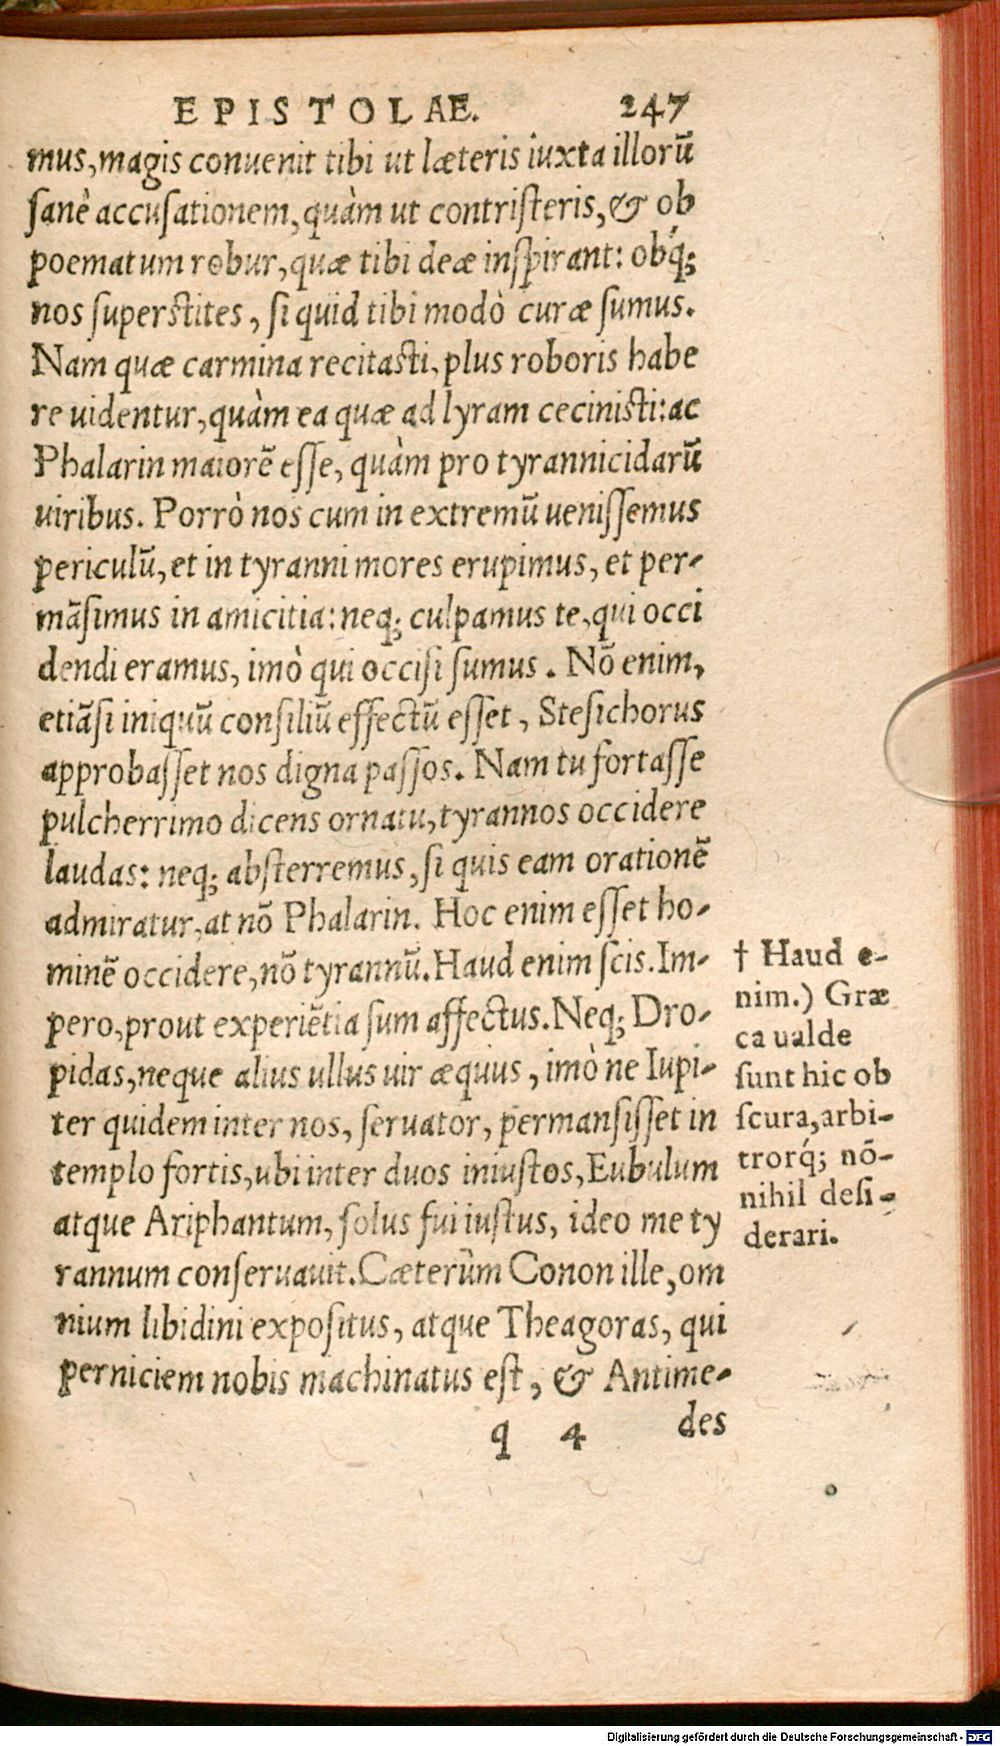 EPISTOLAE. 247
mus, magis conuenit tibi ut læteris iuxta illorũ
ſanè accuſationem, quàm ut contriſteris, & ob
poematum robur, quæ tibi deæ inſpirant: obq́;
nos ſuperſtites, ſi quid tibi modò curæ ſumus.
Nam quæ carmina recitaſti, plus roboris habe
re uidentur, quàm ea quæ ad lyram ceciniſti: ac
Phalarin maiorẽ eſſe, quàm pro tyrannicidarũ
uiribus. Porrò nos cum in extremũ ueniſſemus
periculũ, et in tyranni mores erupimus, et per-
mãſimus in amicitia: neq; culpamus te, qui occi
dendi eramus, imò qui occiſi ſumus. Nõ enim,
etiãſi iniquũ conſiliũ effectũ eſſet, Steſichorus
approbaſſet nos digna paſſos. Nam tu fortaſſe
pulcherrimo dicens ornatu, tyrannos occidere
laudas: neq; abſterremus, ſi quis eam orationẽ
admiratur, at nõ Phalarin. Hoc enim eſſet ho-
minẽ occidere, nõ tyrannũ. Haud enim ſcis. Im-
pero, prout experiẽtia ſum affectus. Neq; Dro-
pidas, neque alius ullus uir æquus, imò ne Iupi-
ter quidem inter nos, ſeruator, permanſiſſet in
templo fortis, ubi inter duos iniuſtos, Eubulum
atque Ariphantum, ſolus fui iuſtus, ideo me ty
rannum conſeruauit. Cæterùm Conon ille, om
nium libidini expoſitus, atque Theagoras, qui
perniciem nobis machinatus eſt, & Antime-
q 4 des
† Haud e-
nim.) Græ
ca ualde
ſunt hic ob
ſcura, arbi-
trorq́; nõ-
nihil deſi-
derari.
Digitalisierung gefördert durch die Deutsche Forschungsgemeinschaft - DFG